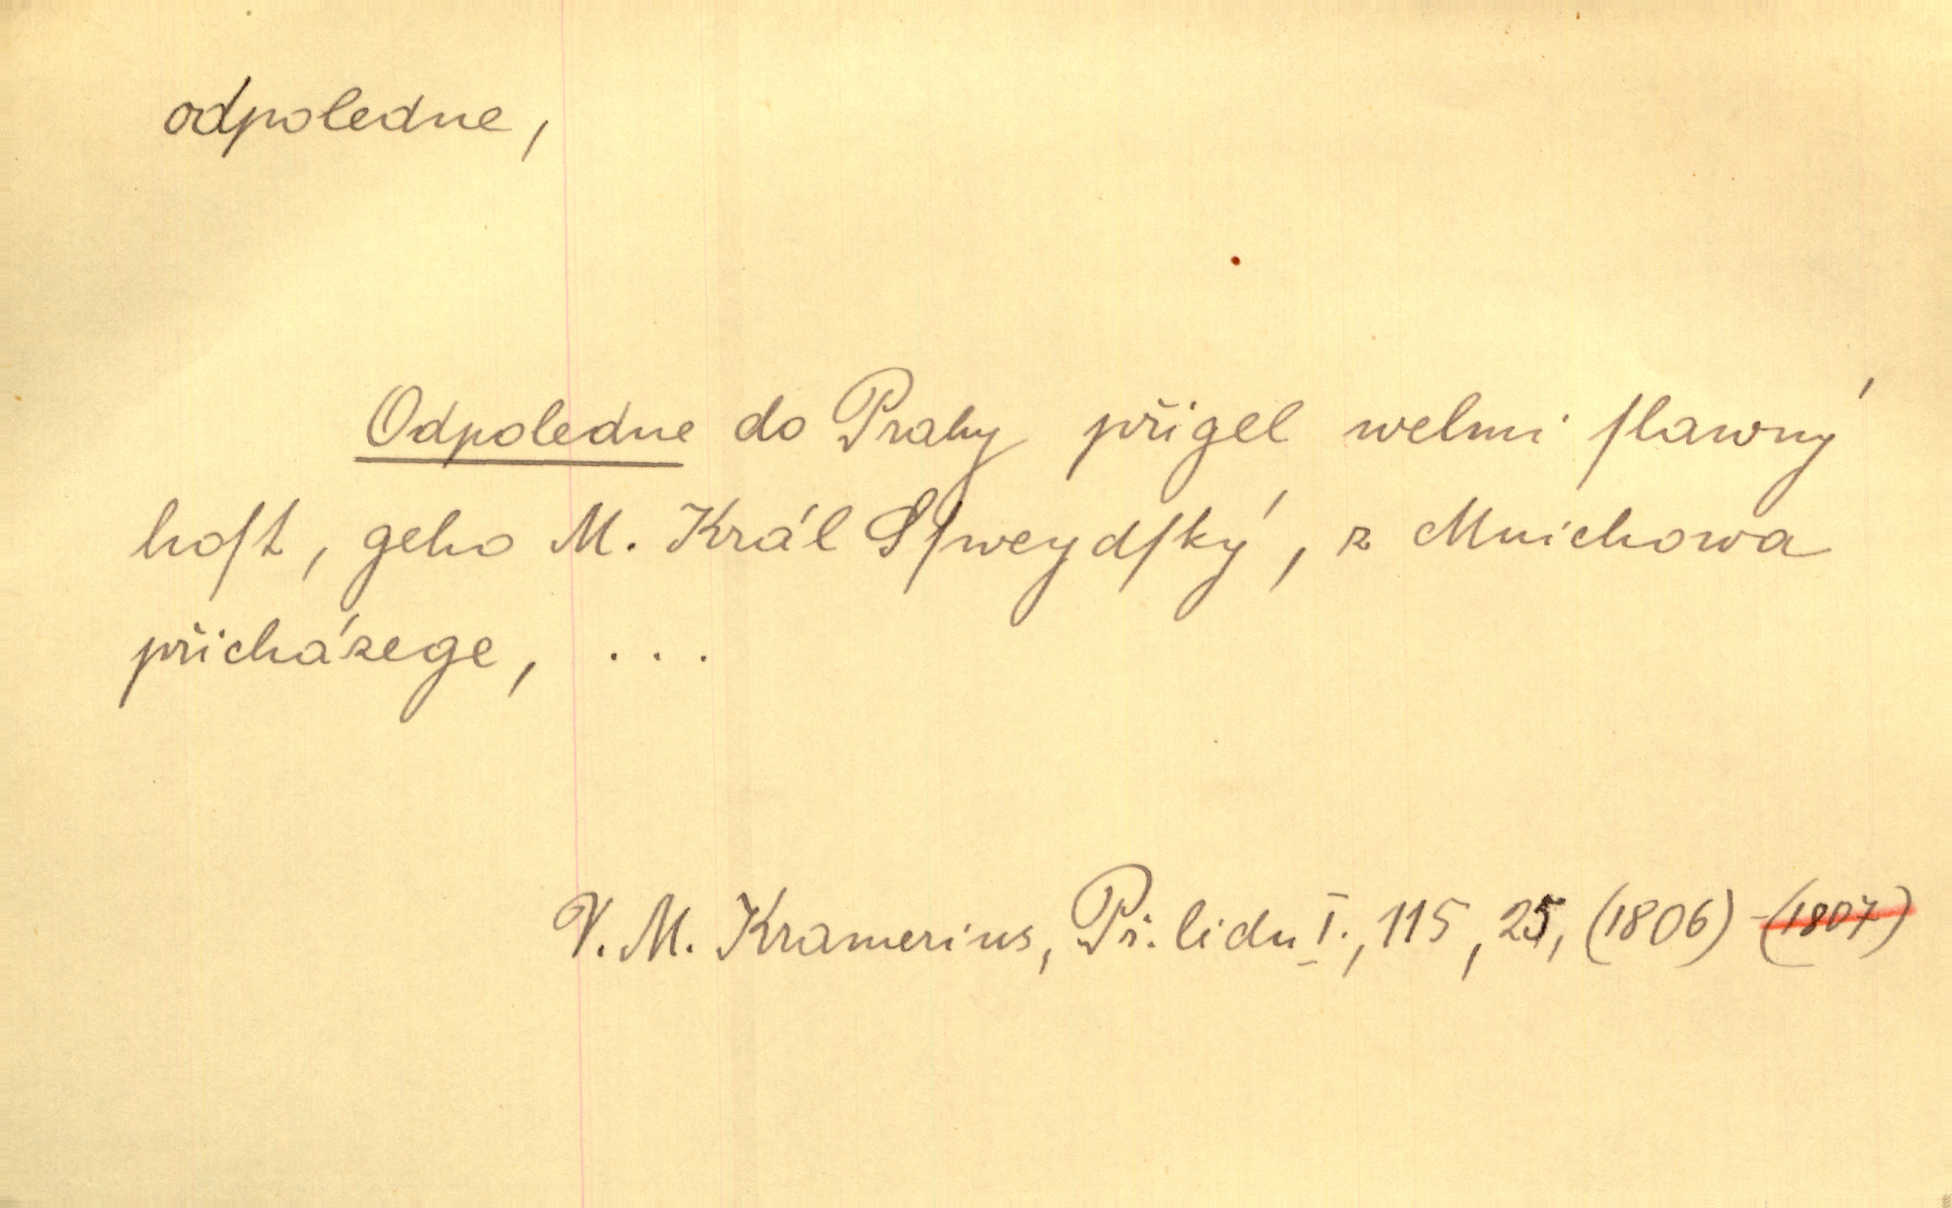 odpoledne,
Odpoledne do Prahy přigel welmi ſlawný
hoſt, geho M. Král Sſweydſký, z Mnichowa
přicházege, ...
V. M. Kramerius, Př. lidu I., 115, 25, (1806) (1807)